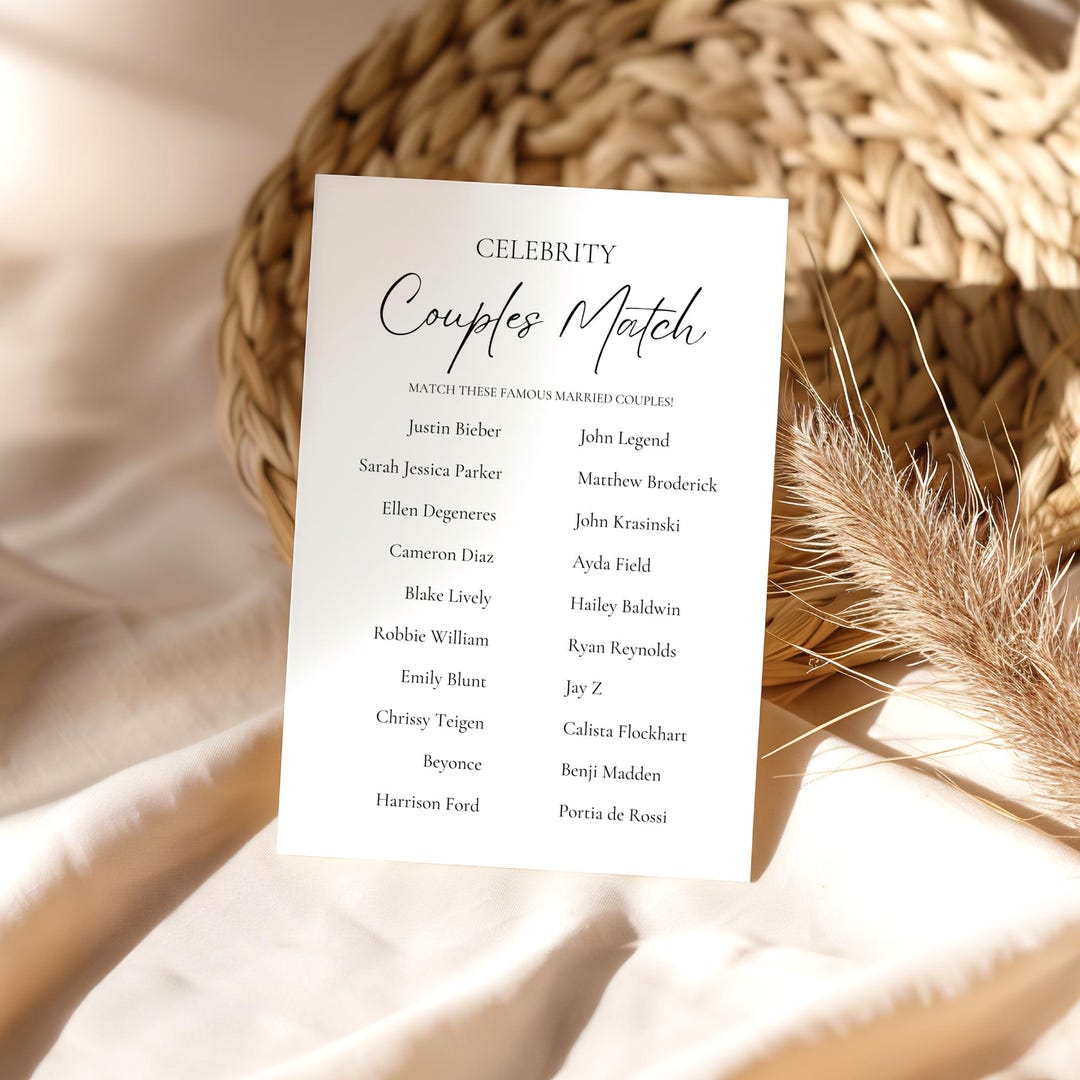 CELEBRITY
Couples Match
MATCH THESE FAMOUS MARRIED COUPLES!
Justin Bieber John Legend
Sarah Jessica Parker Matthew Broderick
Ellen Degeneres John Krasinski
Cameron Diaz Ayda Field
Blake Lively Hailey Baldwin
Robbie William Ryan Reynolds
Emily Blunt Jay Z
Chrissy Teigen Calista Flockhart
Beyonce Benji Madden
Harrison Ford Portia de Rossi